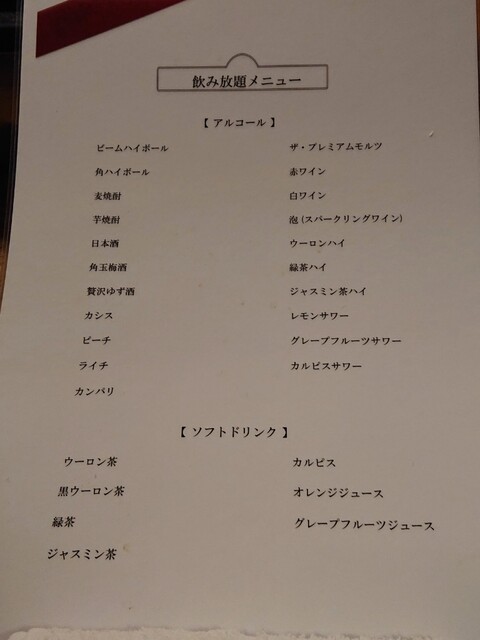 飲み放題メニュー
【 アルコール 】
ビームハイボール
角ハイボール
麦焼酎
芋焼酎
日本酒
角玉梅酒
贅沢ゆず酒
カシス
ピーチ
ライチ
カンパリ
ザ・プレミアムモルツ
赤ワイン
白ワイン
泡 (スパークリングワイン)
ウーロンハイ
緑茶ハイ
ジャスミン茶ハイ
レモンサワー
グレープフルーツサワー
カルピスサワー
【 ソフトドリンク 】
ウーロン茶
黒ウーロン茶
緑茶
ジャスミン茶
カルピス
オレンジジュース
グレープフルーツジュース